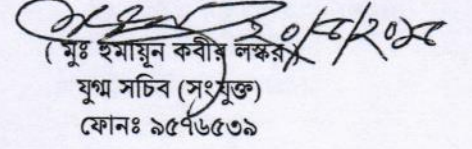 ২০/৫/২০১৫
( মুঃ হুমায়ূন কবীর লস্কর)
যুগ্ম সচিব (সংযুক্ত)
ফোনঃ ৯৫৭৬৫৩৯